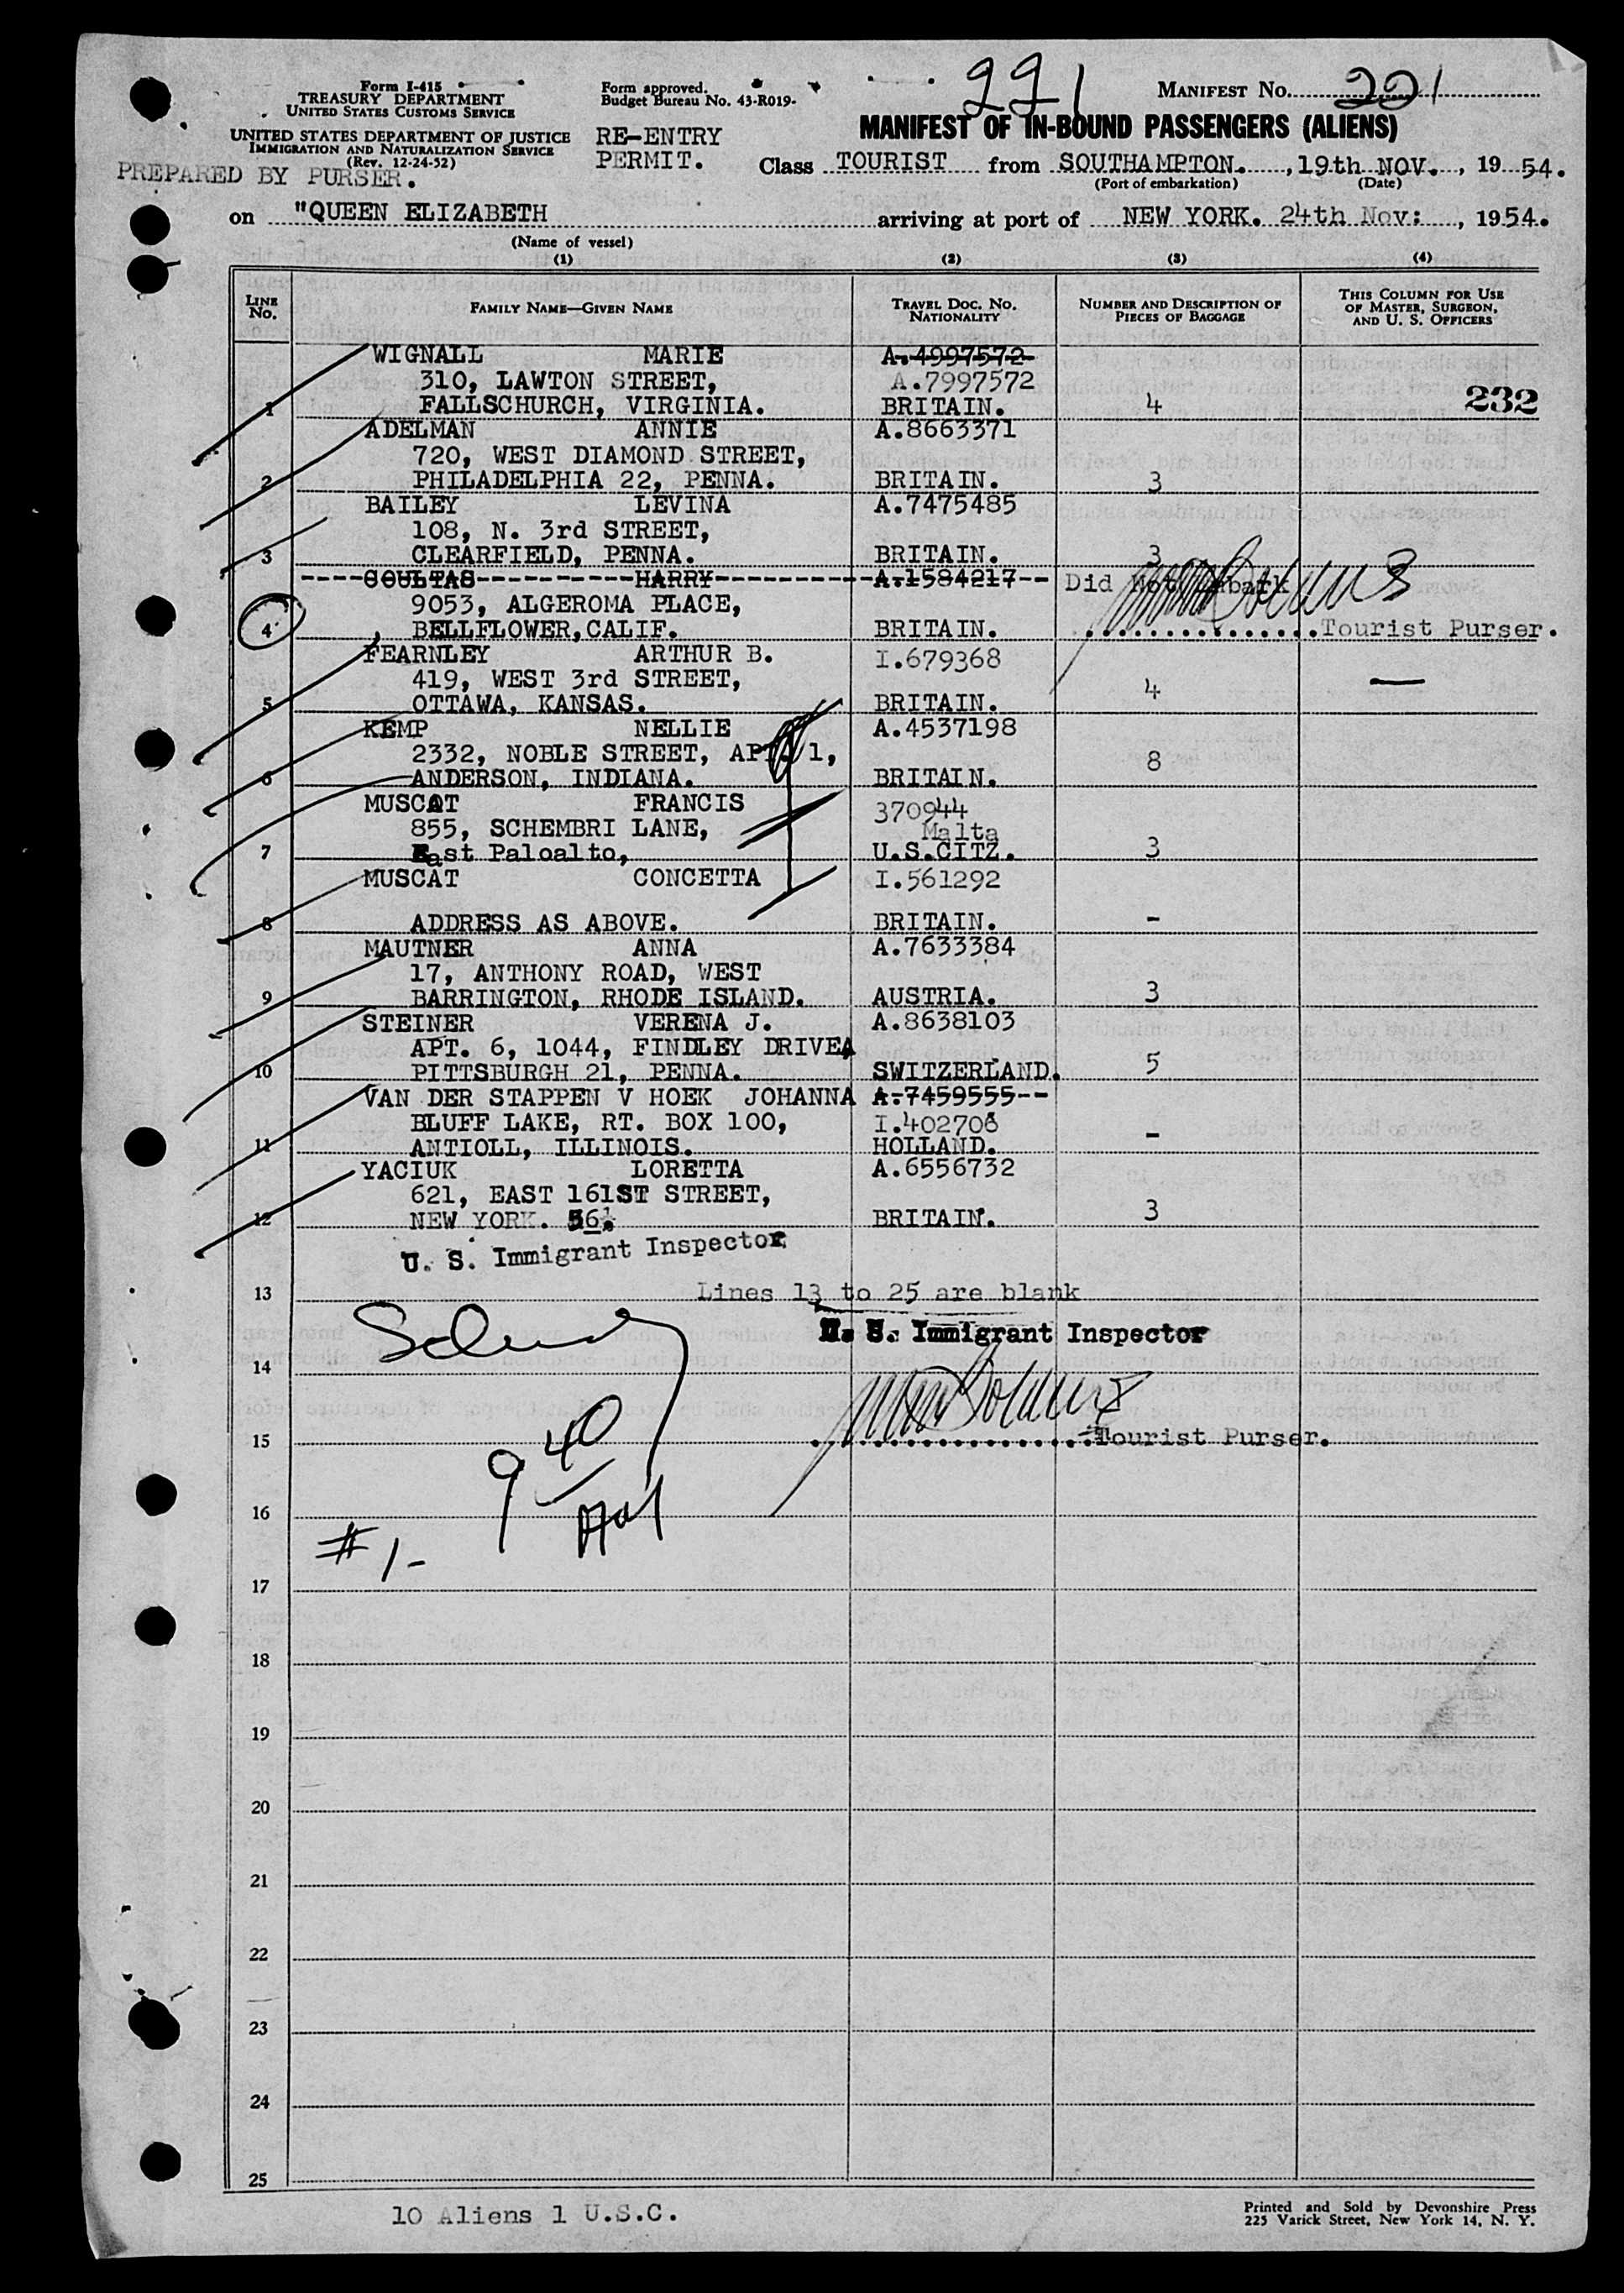 Form I-415
TREASURY DEPARTMENT
UNITED STATES CUSTOMS SERVICE
UNITED STATES DEPARTMENT OF JUSTICE
IMMIGRATION AND NATURALIZATION SERVICE
(Rev. 12-24-52)
PREPARED BY PURSER.
Form approved.
Budget Bureau No. 43-R019-
RE-ENTRY
PERMIT.
221
MANIFEST No. 221
MANIFEST OF IN-BOUND PASSENGERS (ALIENS)
Class TOURIST from SOUTHAMPTON. , 19th NOV. , 19 54.
(Port of embarkation) (Date)
on "QUEEN ELIZABETH arriving at port of NEW YORK. 24th Nov: , 1954.
(Name of vessel)
(1) (2) (3) (4)
LINE No. FAMILY NAME—GIVEN NAME TRAVEL DOC. NO. NATIONALITY NUMBER AND DESCRIPTION OF PIECES OF BAGGAGE THIS COLUMN FOR USE OF MASTER, SURGEON, AND U. S. OFFICERS
WIGNALL MARIE A.4997572
310, LAWTON STREET, A.7997572
1 FALLSCHURCH, VIRGINIA. BRITAIN. 4 232
ADELMAN ANNIE A.8663371
720, WEST DIAMOND STREET,
2 PHILADELPHIA 22, PENNA. BRITAIN. 3
BAILEY LEVINA A.7475485
108, N. 3rd STREET,
3 CLEARFIELD, PENNA. BRITAIN. 3
----COULTAS----------HARRY----------A.1584217-- Did Not Embark
9053, ALGEROMA PLACE,
4 BELLFLOWER,CALIF. BRITAIN. ...............Tourist Purser.
FEARNLEY ARTHUR B. I.679368
419, WEST 3rd STREET,
5 OTTAWA, KANSAS. BRITAIN. 4 —
KEMP NELLIE A.4537198
2332, NOBLE STREET, APT. 1,
6 ANDERSON, INDIANA. BRITAIN. 8
MUSCAT FRANCIS 370944
855, SCHEMBRI LANE, Malta
7 East Paloalto, U.S.CITZ. 3
MUSCAT CONCETTA I.561292
8 ADDRESS AS ABOVE. BRITAIN. -
MAUTNER ANNA A.7633384
17, ANTHONY ROAD, WEST
9 BARRINGTON, RHODE ISLAND. AUSTRIA. 3
STEINER VERENA J. A.8638103
APT. 6, 1044, FINDLEY DRIVE,
10 PITTSBURGH 21, PENNA. SWITZERLAND. 5
VAN DER STAPPEN V HOEK JOHANNA A.7459555--
BLUFF LAKE, RT. BOX 100, I.402708
11 ANTIOLL, ILLINOIS. HOLLAND. -
YACIUK LORETTA A.6556732
621, EAST 161ST STREET,
12 NEW YORK. BRITAIN. 3
U. S. Immigrant Inspector
13 Lines 13 to 25 are blank
U. S. Immigrant Inspector
14
15 ...............Tourist Purser.
9 40
16
# 1-
17
18
19
20
21
22
23
24
25
10 Aliens 1 U.S.C.
Printed and Sold by Devonshire Press
225 Varick Street, New York 14, N. Y.